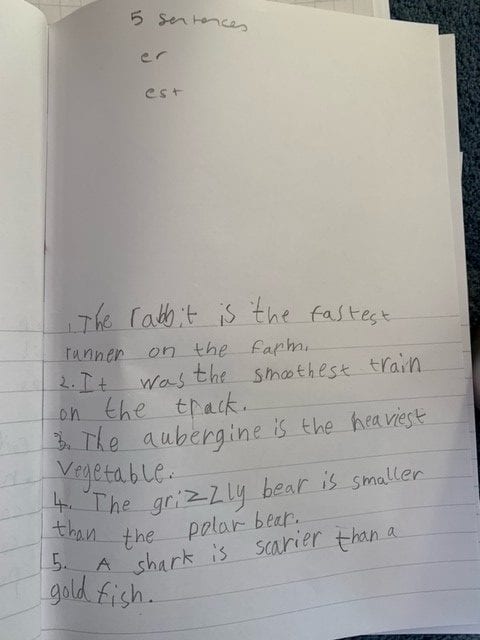 5 sentences
er
est
1. The rabbit is the fastest
runner on the farm.
2. It was the smoothest train
on the track.
3. The aubergine is the heaviest
vegetable.
4. The grizzly bear is smaller
than the polar bear.
5. A shark is scarier than a
gold fish.